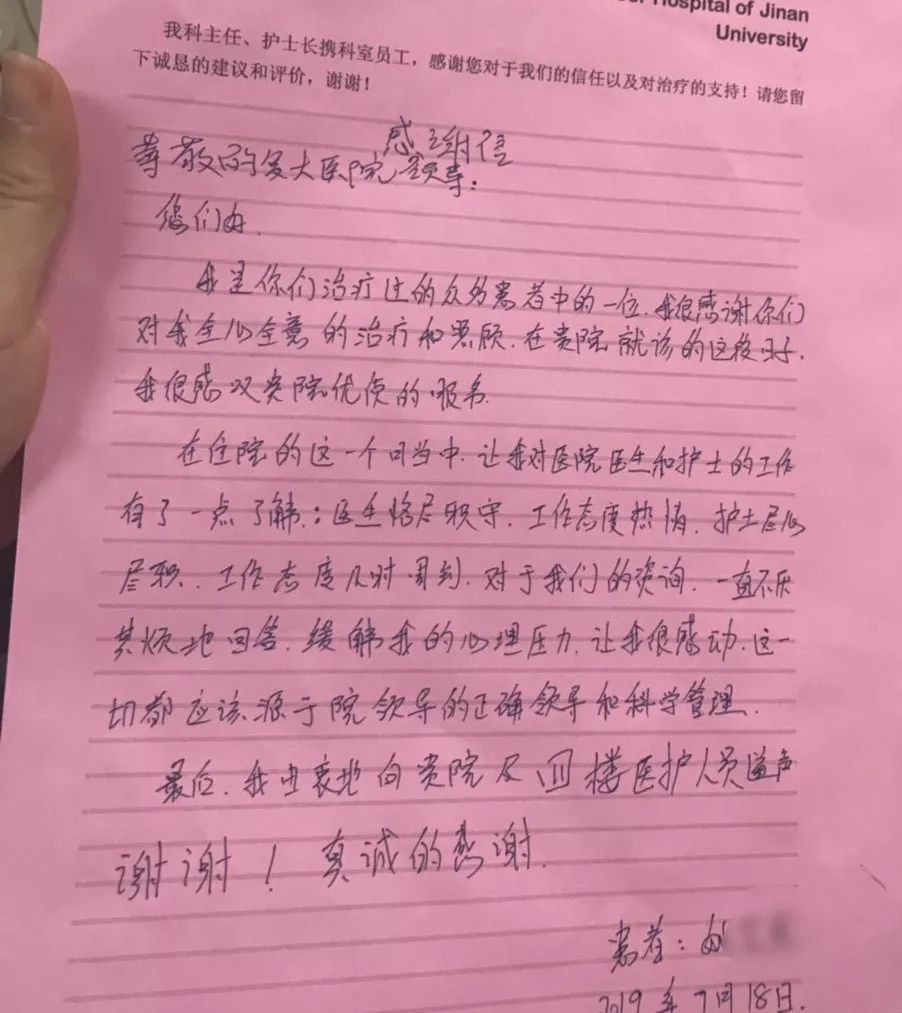 Hospital of Jinan
University
我科主任、护士长携科室员工，感谢您对于我们的信任以及对治疗的支持！请您留
下诚恳的建议和评价，谢谢！
感谢信
尊敬的复大医院领导：
您们好.
我是你们治疗过的众多患者中的一位.我很感谢你们
对我全心全意的治疗和照顾.在贵院就诊的这段日子.
我很感叹贵院优质的服务.
在住院的这一个月当中.让我对医院医生和护士的工作
有了一点了解.：医生恪尽职守.工作态度热情.护士尽心
尽职.工作态度及时周到.对于我们的咨询.一直不厌
其烦地回答.缓解我的心理压力.让我很感动.这一
切都应该源于院领导的正确领导和科学管理.
最后.我由衷地向贵院及四楼医护人员道声
谢谢！真诚的感谢.
患者：
2019年7月18日.